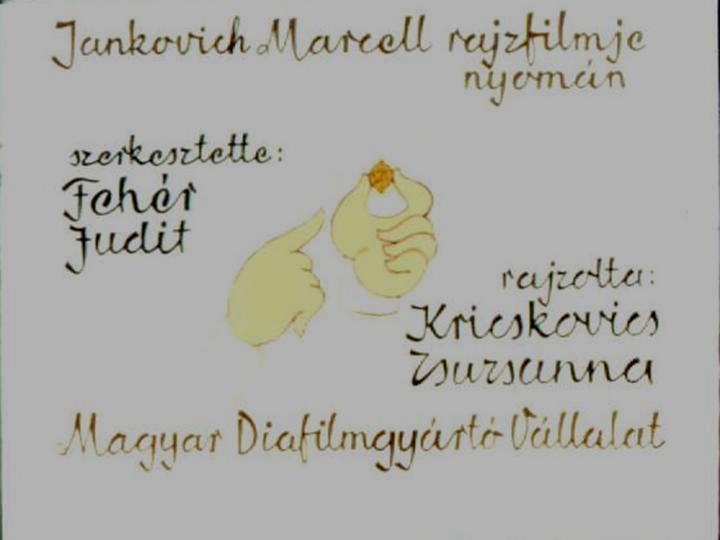 Jankovich Marcell rajzfilmje
nyomán
szerkesztette:
Fehér
Judit
rajzolta:
Kricskovics
Zsuzsanna
Magyar Diafilmgyártó Vállalat